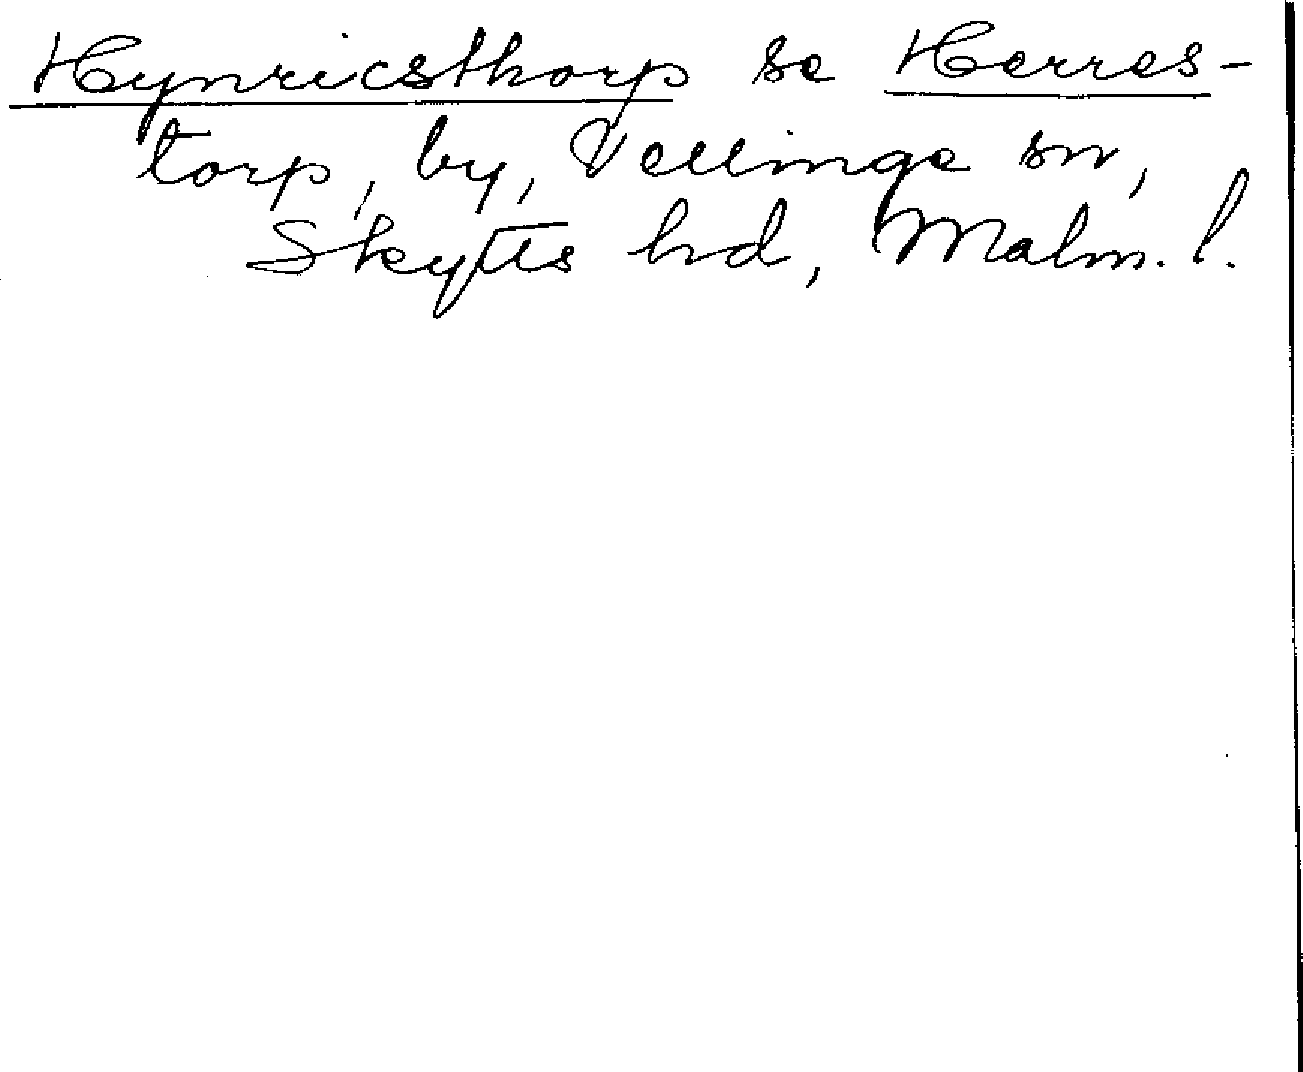 Hynricsthorp se Herres-
torp, by, Vellinge sn,
Skytts hd, Malm. l.